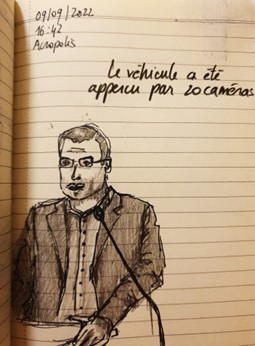 09/09/2022
16:42
Acropolis
Le véhicule a été
apperçu par 20 caméras